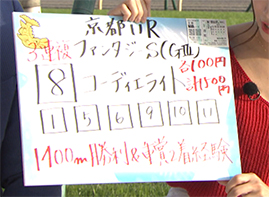 京都11R
3連複 ファンタジーS(GⅢ)
各100円
8 コーディエライト 計1500円
1 5 6 9 10 11
1400m勝利&重賞2着経験